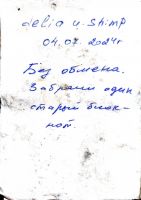 delia u shimp
04.07.2024г
Без обмена.
Забрали один
старый блок-
нот.